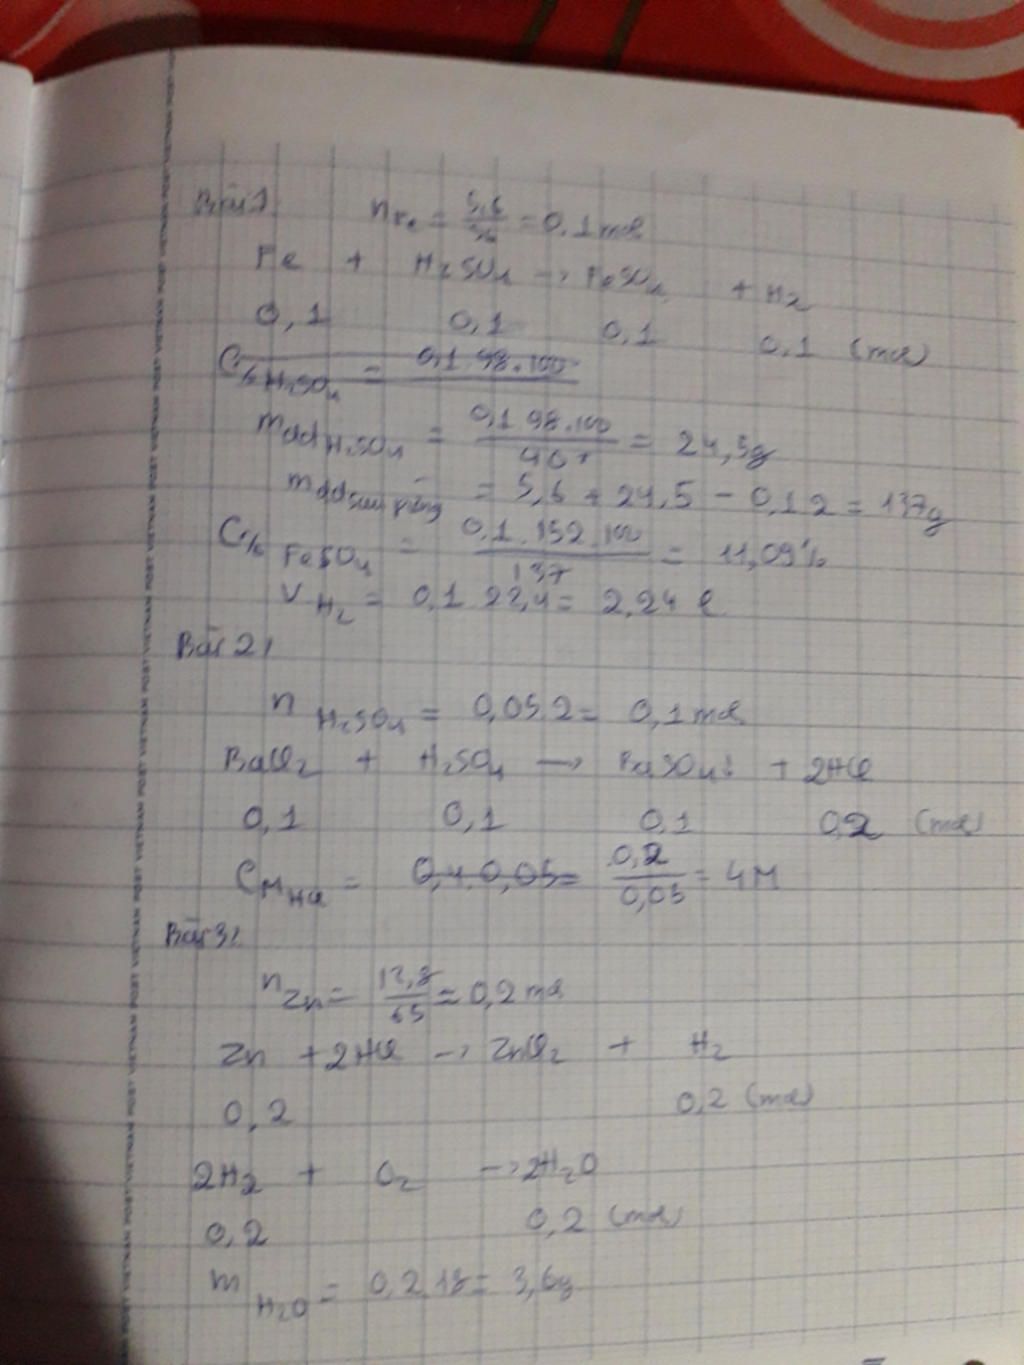 Bài 1
nFe = 5,6/56 = 0,1 mol
Fe + H2SO4 → FeSO4 + H2
0,1 0,1 0,1 0,1 (mol)
C% H2SO4 = 0,1.98.100
mddH2SO4 = 0,1.98.100/40 = 24,5g
mdd sau = 5,6 + 24,5 - 0,1.2 = 137g
C% FeSO4 = 0,1.152.100/137 = 11,09%
V H2 = 0,1.22,4 = 2,24 l
Bài 2:
n H2SO4 = 0,05.2 = 0,1 mol
BaCl2 + H2SO4 → BaSO4↓ + 2HCl
0,1 0,1 0,1 0,2 (mol)
CM HCl = 0,4.0,05 = 0,2/0,05 = 4M
Bài 3:
nZn = /65 = 0,2 mol
Zn + 2HCl → ZnCl2 + H2
0,2 0,2 (mol)
2H2 + O2 → 2H2O
0,2 0,2 (mol)
m H2O = 0,2.18 = 3,6g
VIETNAM POST VIETNAM POST VIETNAM POST